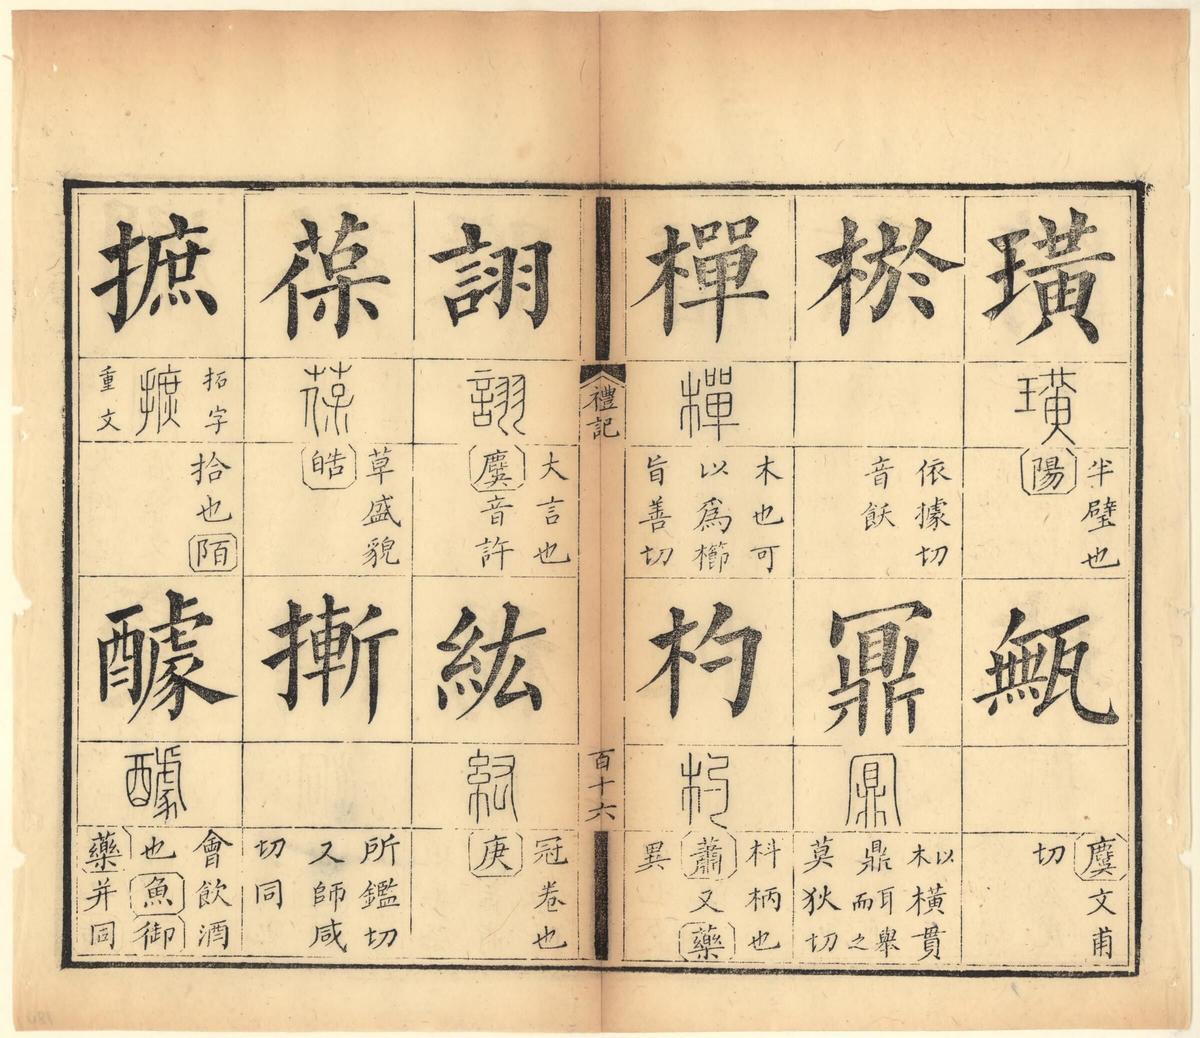 璜
璜
半璧也
陽
甒
麌文甫
切
棜
依據切
音飫
鼏
鼏
以木橫貫
鼎耳而舉之
莫狄切
樿
樿
木也可
以爲櫛
旨善切
杓
杓
枓柄也
蕭又藥
異
禮記
百十六
詡
詡
大言也
麌音許
紘
紘
冠卷也
庚
葆
葆
草盛貌
皓
摲
所鑑切
又師咸
切同
摭
拓字
摭
重文
拾也陌
醵
醵
會飲酒
也魚御
藥并同